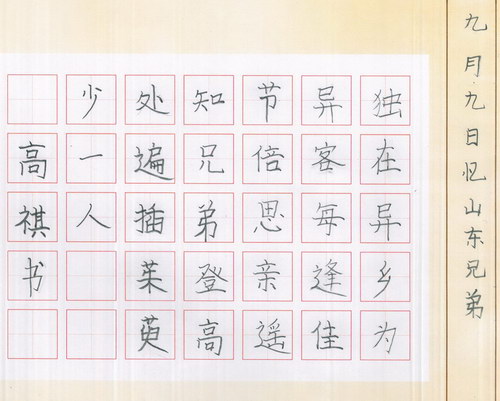 九月九日忆山东兄弟
独在异乡为
异客每逢佳
节倍思亲遥
知兄弟登高
处遍插茱萸
少一人
高祺书